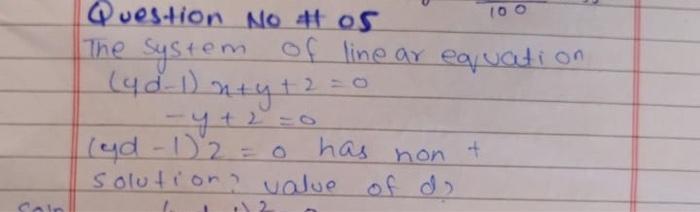 100
Question No # 05
The system of linear equation
(4d-1) x+y+2=0
-y+2=0
(4d-1)2=0 has non t
solution? value of d?